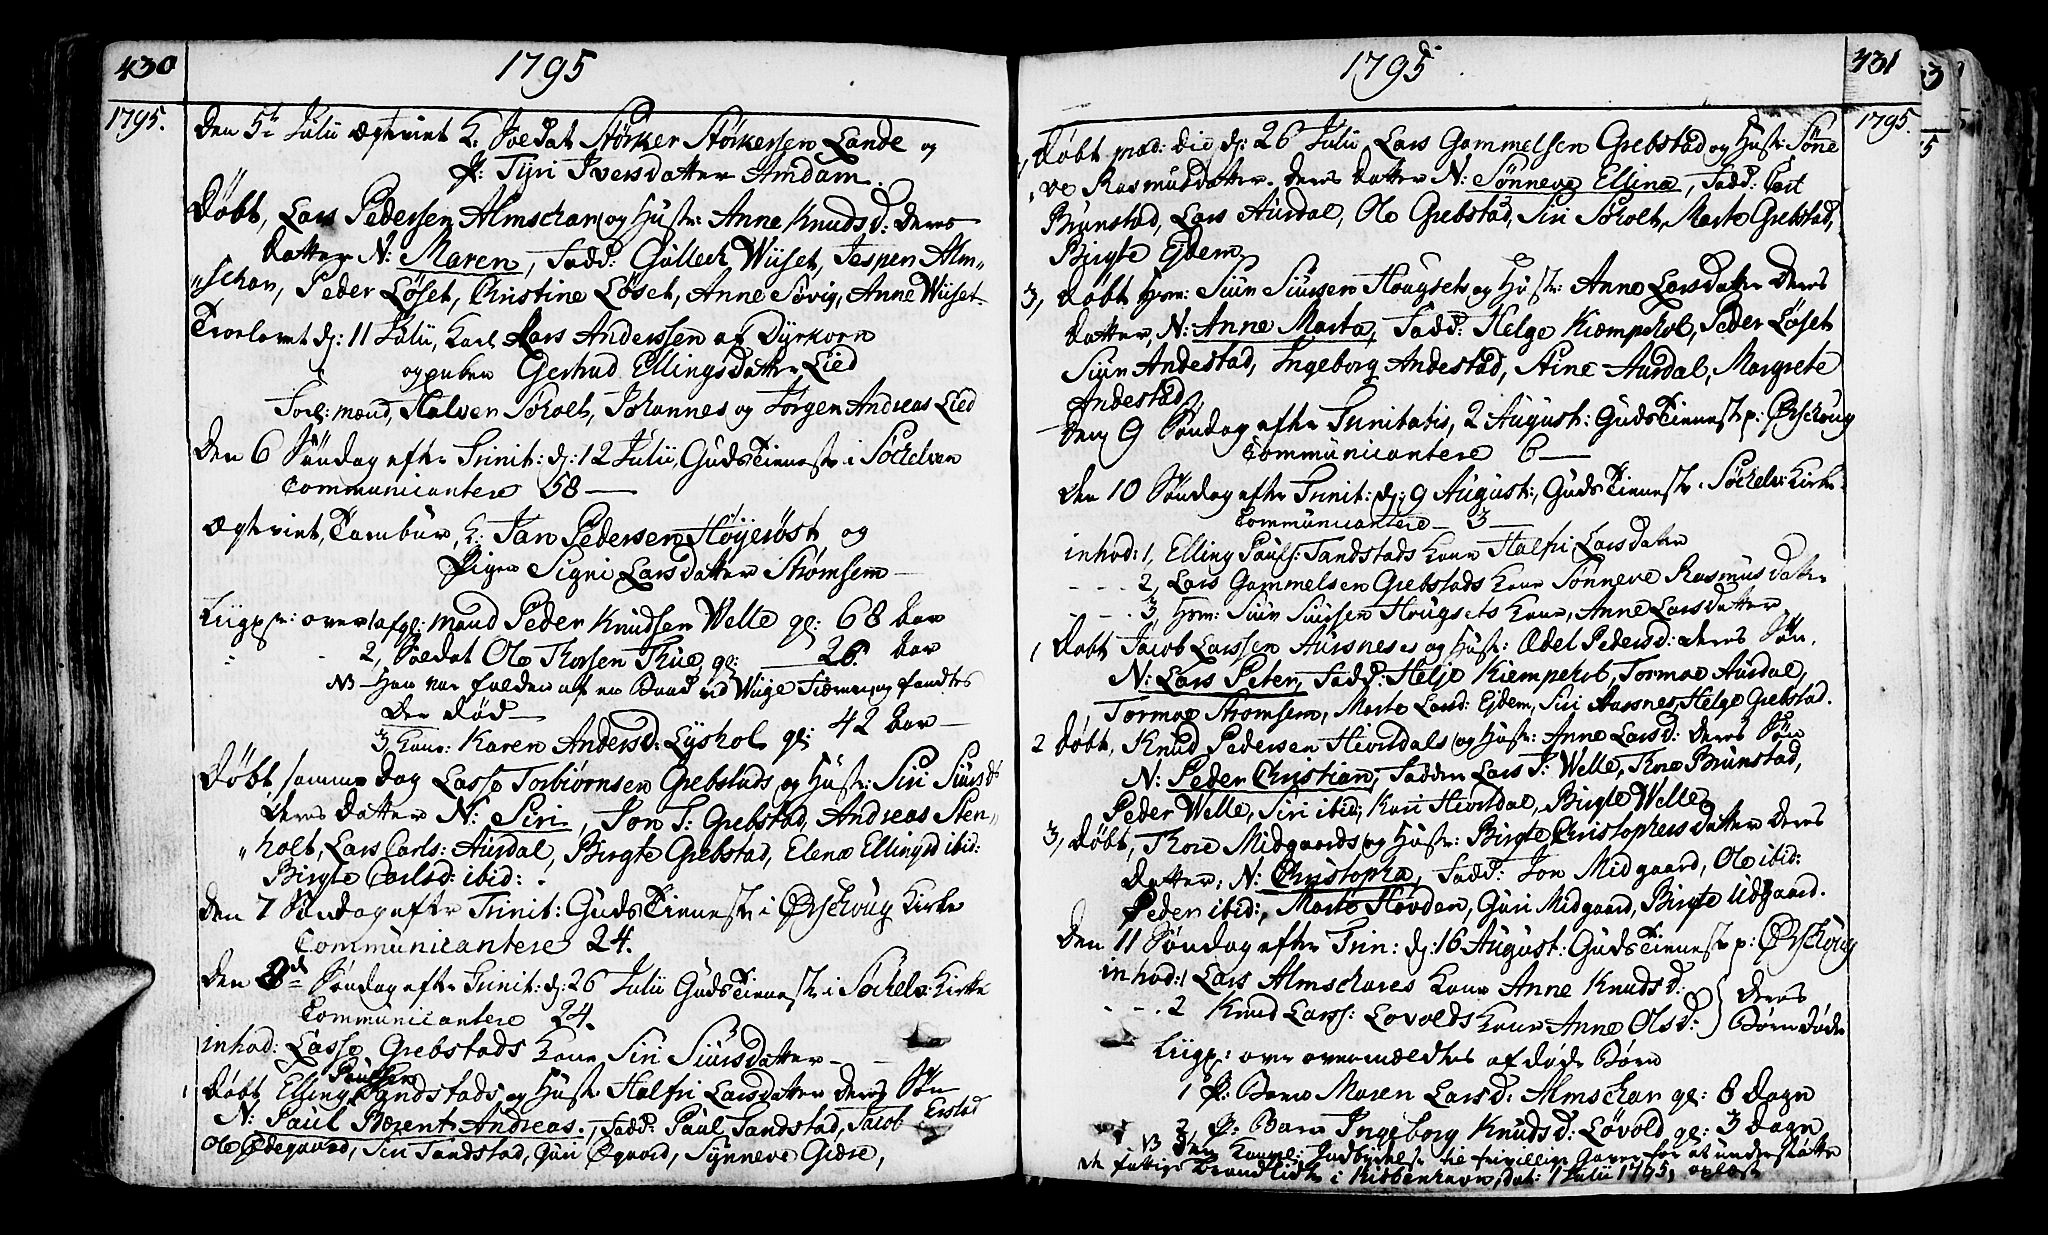 430
1795
1795.
Den 5te Julii Ægteviet K. Soldat Størker Størkersen Lande og
P: Tyri Iversdatter Amdam.
Døbt, Lars Pedersen Almschar og Hustr: Anne Knudsd: deres
datter N: Maren, Fadd: Gulleck Wiiset, Jespen Alm„
„schar, Peder Løset, Christine Løset, Anne Søvig, Anne Wiiset
Troelovet d: 11 Julii, Karl Lars Anderssen af Dyrkorn
og piken Gertrud Ellingsdatter Lied
Forl: mænd, Halver Søholt, Johannes og Jørgen Andreas Lied
Den 6 Søndag efter Trinit: d: 12 Julii, Guds Tieneste i Søchelven
Communicantere 58
Ægteviet, Tambur, K: Jan Pedersen Høyerøst og
Pigen Signi Larsdatter Strømsem
Liigpr: over 1 afg: mand Peder Knudsen Welle gl: 68 Aar
2, Soldat Ole Thorsen Thue, gl: 26. Aar
NB Han var falden af en Baad ved Wiige Fiæren, og fandtes
der død
3, Kone: Karen Andersd: Lyshol gl: 42 Aar
Døbt, samme dag Lasse Torbiørnsen Grebstads og Hustr: Siri Siursd:
deres datter N: Siri, Jon T: Grebstad, Andreas Sten„
„holt, Lars Carls: Aursdal, Birgte Grebstad, Elena Ellingsd ibid:
Birgte Carlsd: ibid:
Den 7 Søndag efter Trinit: Guds Tieneste i Ørschoug Kirke
Communicantere 24.
Den 8de Søndag efter Trinit: d: 26 Julii Guds Tieneste i Søchelv: Kirke
Communicantere 24.
inhod: Lasse Grebstads Kone Siri Siursdatter
1 Døbt Elling Paulsen Tandstads og Hustr: Halfri Larsdatter deres Søn
N: Paul Berent Andreas, Fadd: Paul Tandstad, Jacob Erstad
Ole Ødegaard, Siri Tandstad, Guri Øgaard, Synneve Giære,
431
1795
1795.
2, Døbt præd: die d: 26 Julii Lars Gammelsen Grebstad og Hustr: Søne
„ve Rasmusdatter deres datter N: Sønneve Ellina, Fadd:
Brunstad, Lars Aursdal, Ole Grebstad, Siri Søholt, Marte Grebstad,
Birgte Ejdem.
3, Døbt Hrm: Siur Siursen Hougsets og Hustr: Anne Larsdater deres
datter, N: Anne Marta, Fadd: Helge Kiempehol, Peder Løset
Siur Andestad, Ingeborg Andestad, Stine Aursdal, Margrete
Andestad,
Den 9 Søndag efter Trinitatis, 2 August: Guds Tieneste p: Ørschoug
Communicantere 6
Den 10 Søndag efter Trinit: d: 9 August:, Guds Tieneste i Søchelv: Kirke
Communicantere 3
inhod: 1, Elling Pauls: Tandstads Kone Halfri Larsdater
2, Lars Gammelsen Grebstads Kone Sønneve Rasmusdater
3, Hrm: Siur Siursen Hougsets Kone, Anne Larsdatter
1 Døbt Jacob Larssen Aursnes og Hustr: Ædel Pedersd: deres Søn,
N: Lars Peter, Fadd: Helje Kiempehol, Tormoe Aursdal,
Tormoe Strømsem, Marte Larsd: Ejdem, Siri Aursnes, Helge Grebstad.
2 Døbt, Knud Pedersen Hevsdals og Hustr: Anne Larsd: deres Søn
N: Peder Christian, Fadder Lars I: Welle, Thore Brunstad,
Peder Welle, Siri ibid: Kari Hevsdal, Birgte Welle
3, Døbt, Thore Midgaards og Hustr: Birgte Christophersdatter deres
datter, N: Christopha, Fadd: Jon Midgaard, Ole ibid:
Peder ibid:, Marte Hovden, Guri Midgaard, Birgte Udgaard.
Den 11 Søndag efter Trin: d: 16 August: Guds Tieneste p: Ørschoug
inhod: 1 Lars Almschares Kone Anne Knudsd: deres
2 Knud Larss: Løvolds Kone Anne Olsd: Børn døde
Liigp: over ovenmeldtes af døde Børn
1 P: Barn Maren Larsd: Almschar gl: 8 dage
2, P: Barn Ingeborg Knudsd: Løvold gl: 3 dage
NB den Kongel: Indbydelse til frivillige Gaver for at understøtte
de fattige Brandlidte i Kiøbenhavn, dat: 1 Julii 1795, oplæst